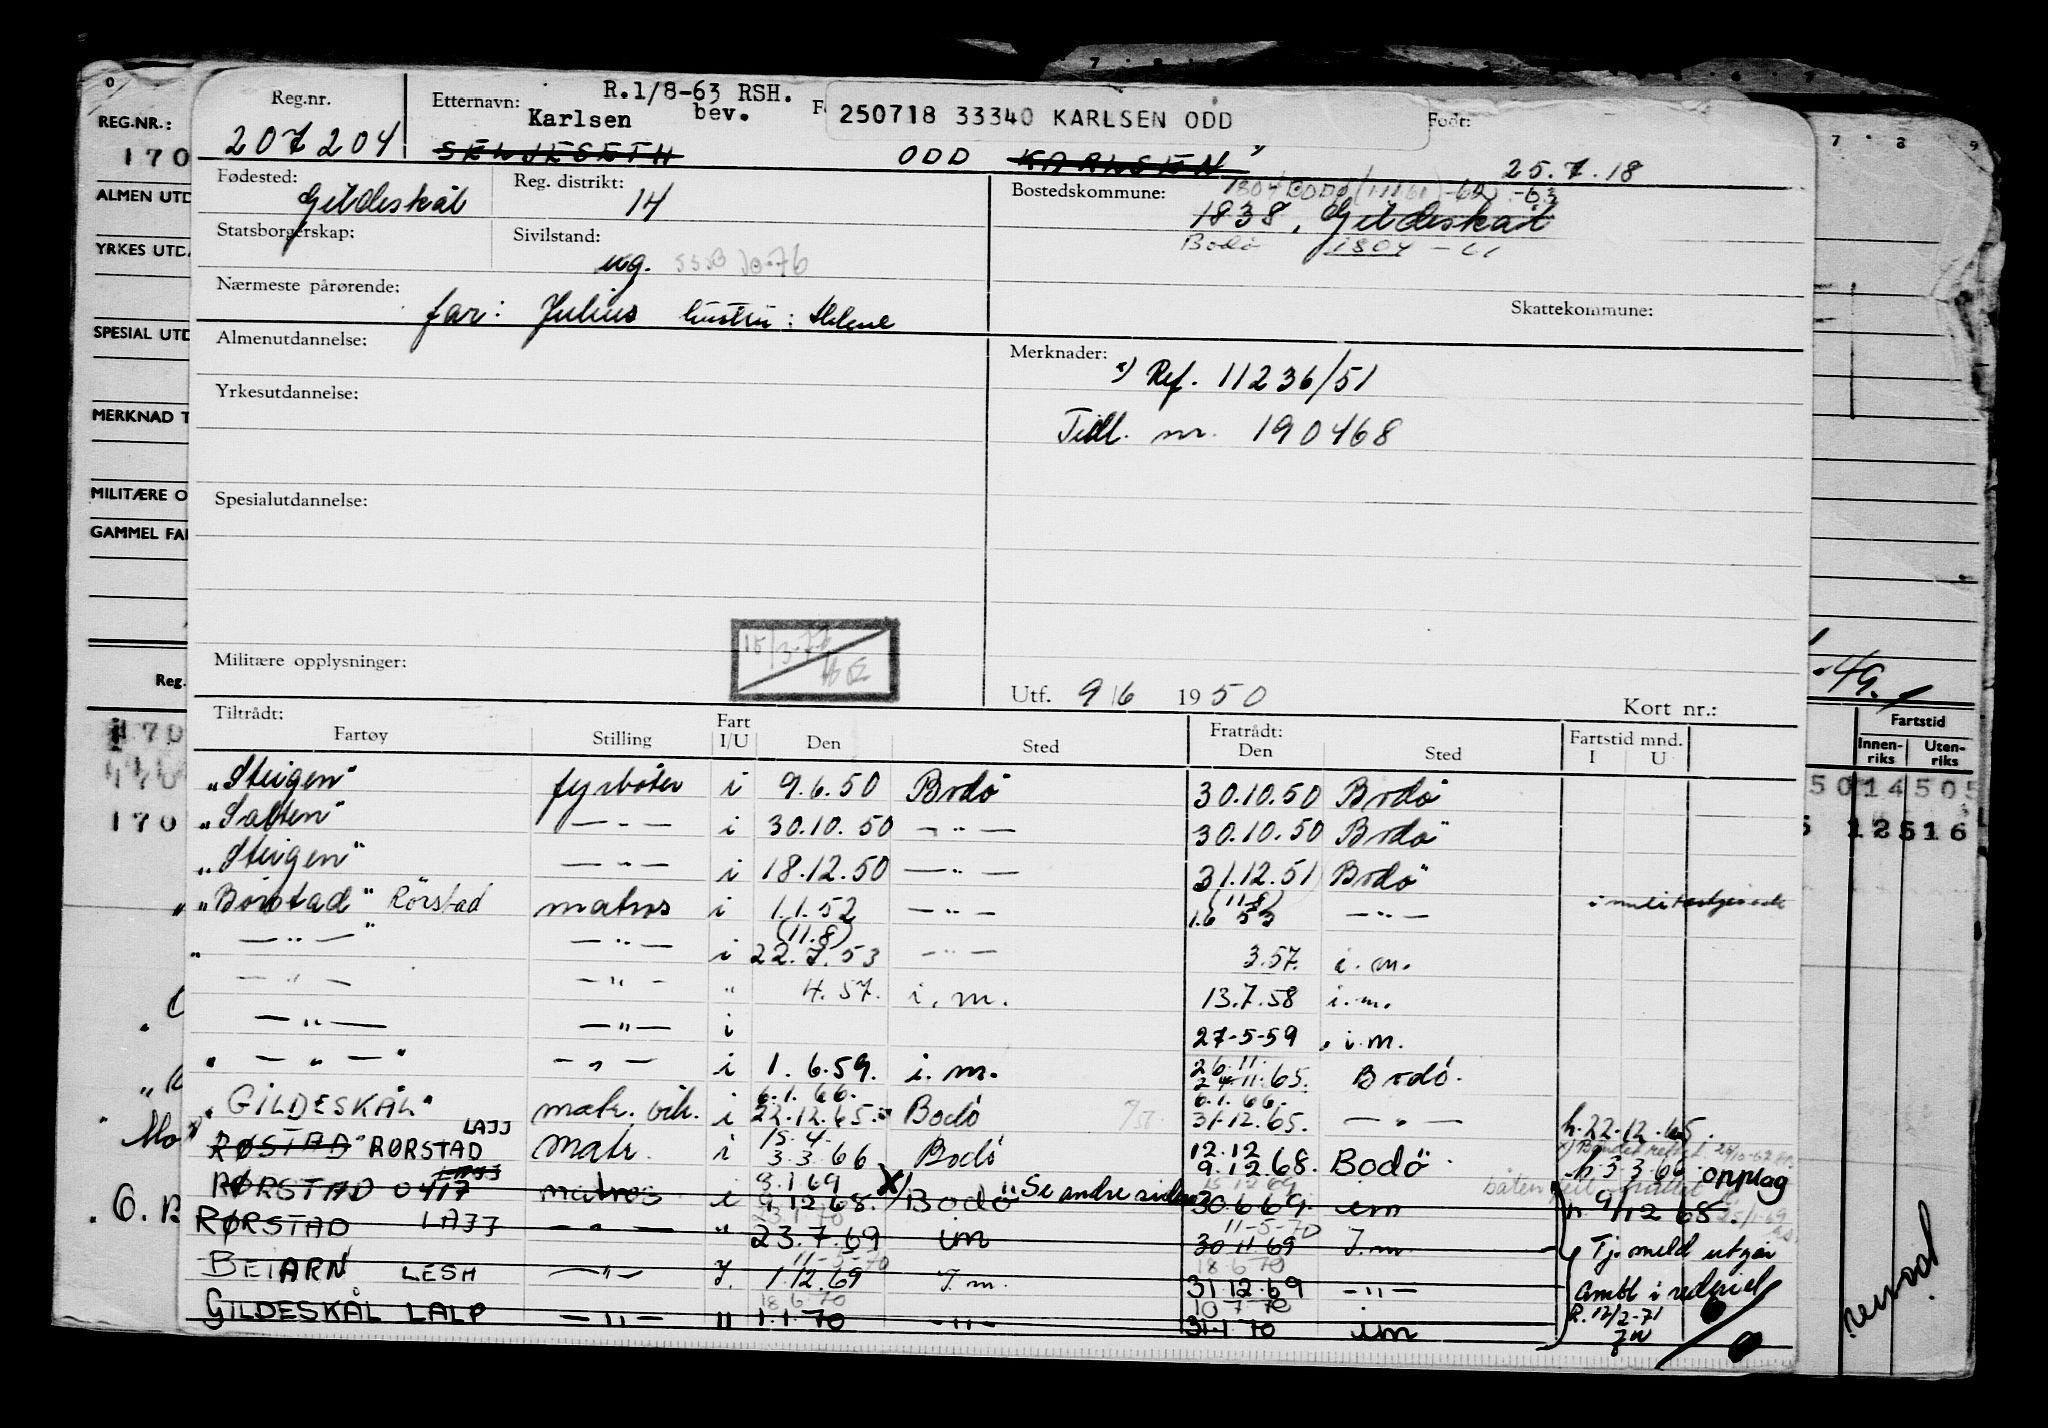 Reg.nr. Etternavn: R.1/8-63 RSH. 250718 33340 KARLSEN ODD Født:
207204 Karlsen bev.
SELJESETH ODD KARLSEN 25.7.18
Fødested: Gildeskål Reg. distrikt: 14 Bostedskommune: 1804 Bodø
1838, Gildeskål
Statsborgerskap: Sivilstand: ug. Bodø 1804
Nærmeste pårørende: far: Julius hustru: Helene Skattekommune:
Almenutdannelse: Merknader: Ref. 11236/51
Yrkesutdannelse: Tidl. nr. 190468
Spesialutdannelse:
Militære opplysninger: Utf. 9/6 1950 Kort nr.:
Tiltrådt: Fratrådt: Fartstid mnd.
Fartøy Stilling Fart I/U Den Sted Den Sted I U
"Steigen" fyrbøter i 9.6.50 Bodø 30.10.50 Bodø
"Salten" — " — i 30.10.50 — " — 30.10.50 Bodø
"Steigen" — " — i 18.12.50 — " — 31.12.51 Bodø
"Børstad" Rørstad matros i 1.1.52 — " — (11.8) 1.6 53 — " —
— " — — " — i (11.8) 22.7.53 — " — 3.57. i.m.
— " — — " — " 4.57. i.m. 13.7.58 i.m.
— " — — " — i 27-5-59 i.m.
— " — — " — i 1.6.59. i.m. 26.11. 24.11.65. Bodø.
"GILDESKÅL" matr. vik. i 6.1.66. 22.12.65. Bodø 6.1.66. 31.12.65. — " — h.22.12.65.
RØSTAD RØRSTAD LAJJ Matr. i 15.4. 3.3.66 Bodø 12.12 9.12.68. Bodø h.3.3.66 opplag
RØRSTAD 0417 LAJJ matros i 8.1.69 9.12.68. X) Bodø "Se andre siden 30.6.69. im h. 9/12 68.
RØRSTAD LAJJ — " — " 23.7.69 im 11-5-70 30.11.69 I.m. Tj.meld utgår
BEIARN LESH — " — I. 11-5-70 1.12.69 I.m. 18.6.70 31.12.69 — " — ombl i rederiet
GILDESKÅL LALP — " — " 18.6.70 1.1.70 — " — 10.7.70 31.1.70 im R.12/2-71
REG.NR.:
170
ALMEN UTD
YRKES UTD
SPESIAL UTD
MERKNAD T
MILITÆRE O
GAMMEL FA
Reg.
170
170
Fartstid
Innenriks Utenriks